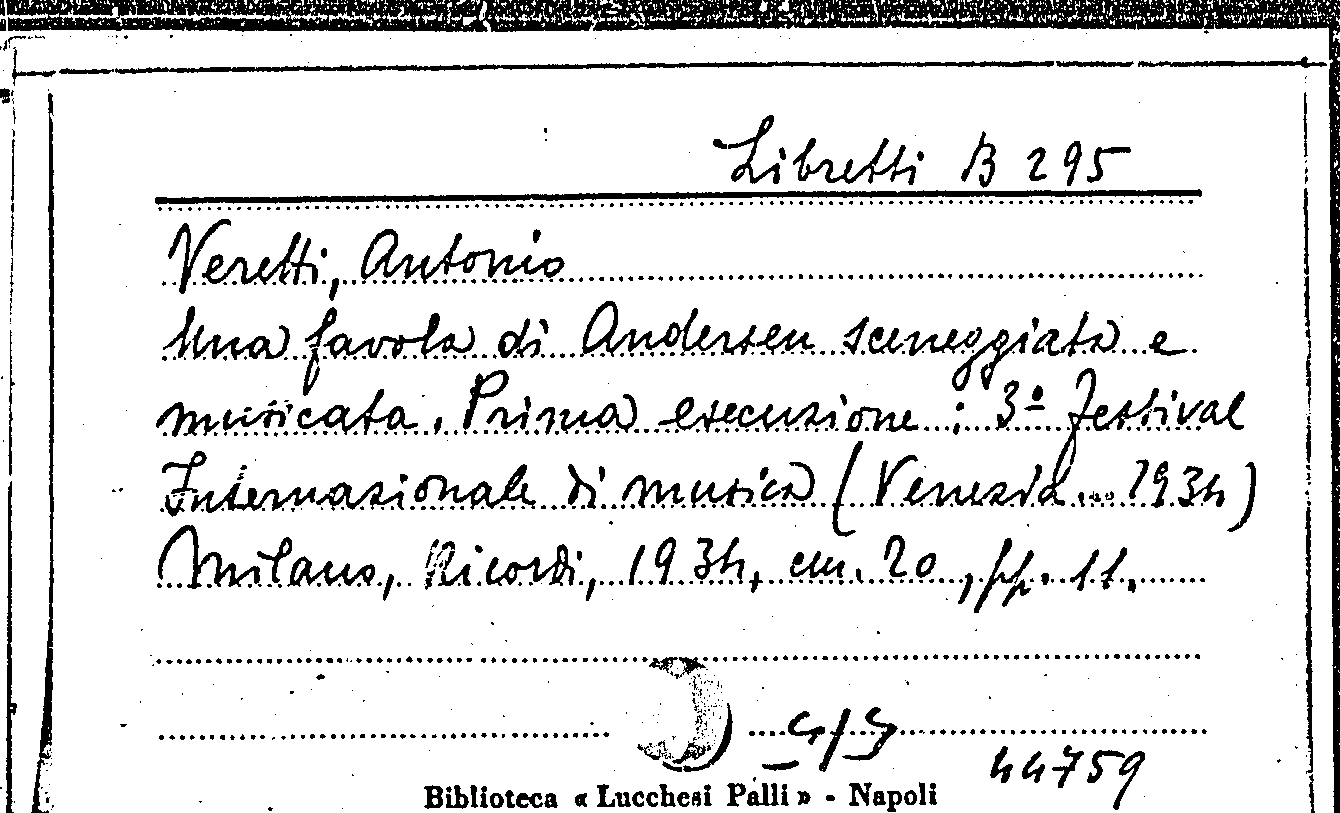 Libretti B 295
Veretti, Antonio
Una favola di Andersen sceneggiata e
musicata. Prima esecuzione: 3º Festival
Internazionale di musica (Venezia... 1934)
Milano, Ricordi, 1934, cm. 20, pp. 11.
44759
Biblioteca « Lucchesi Palli » - Napoli